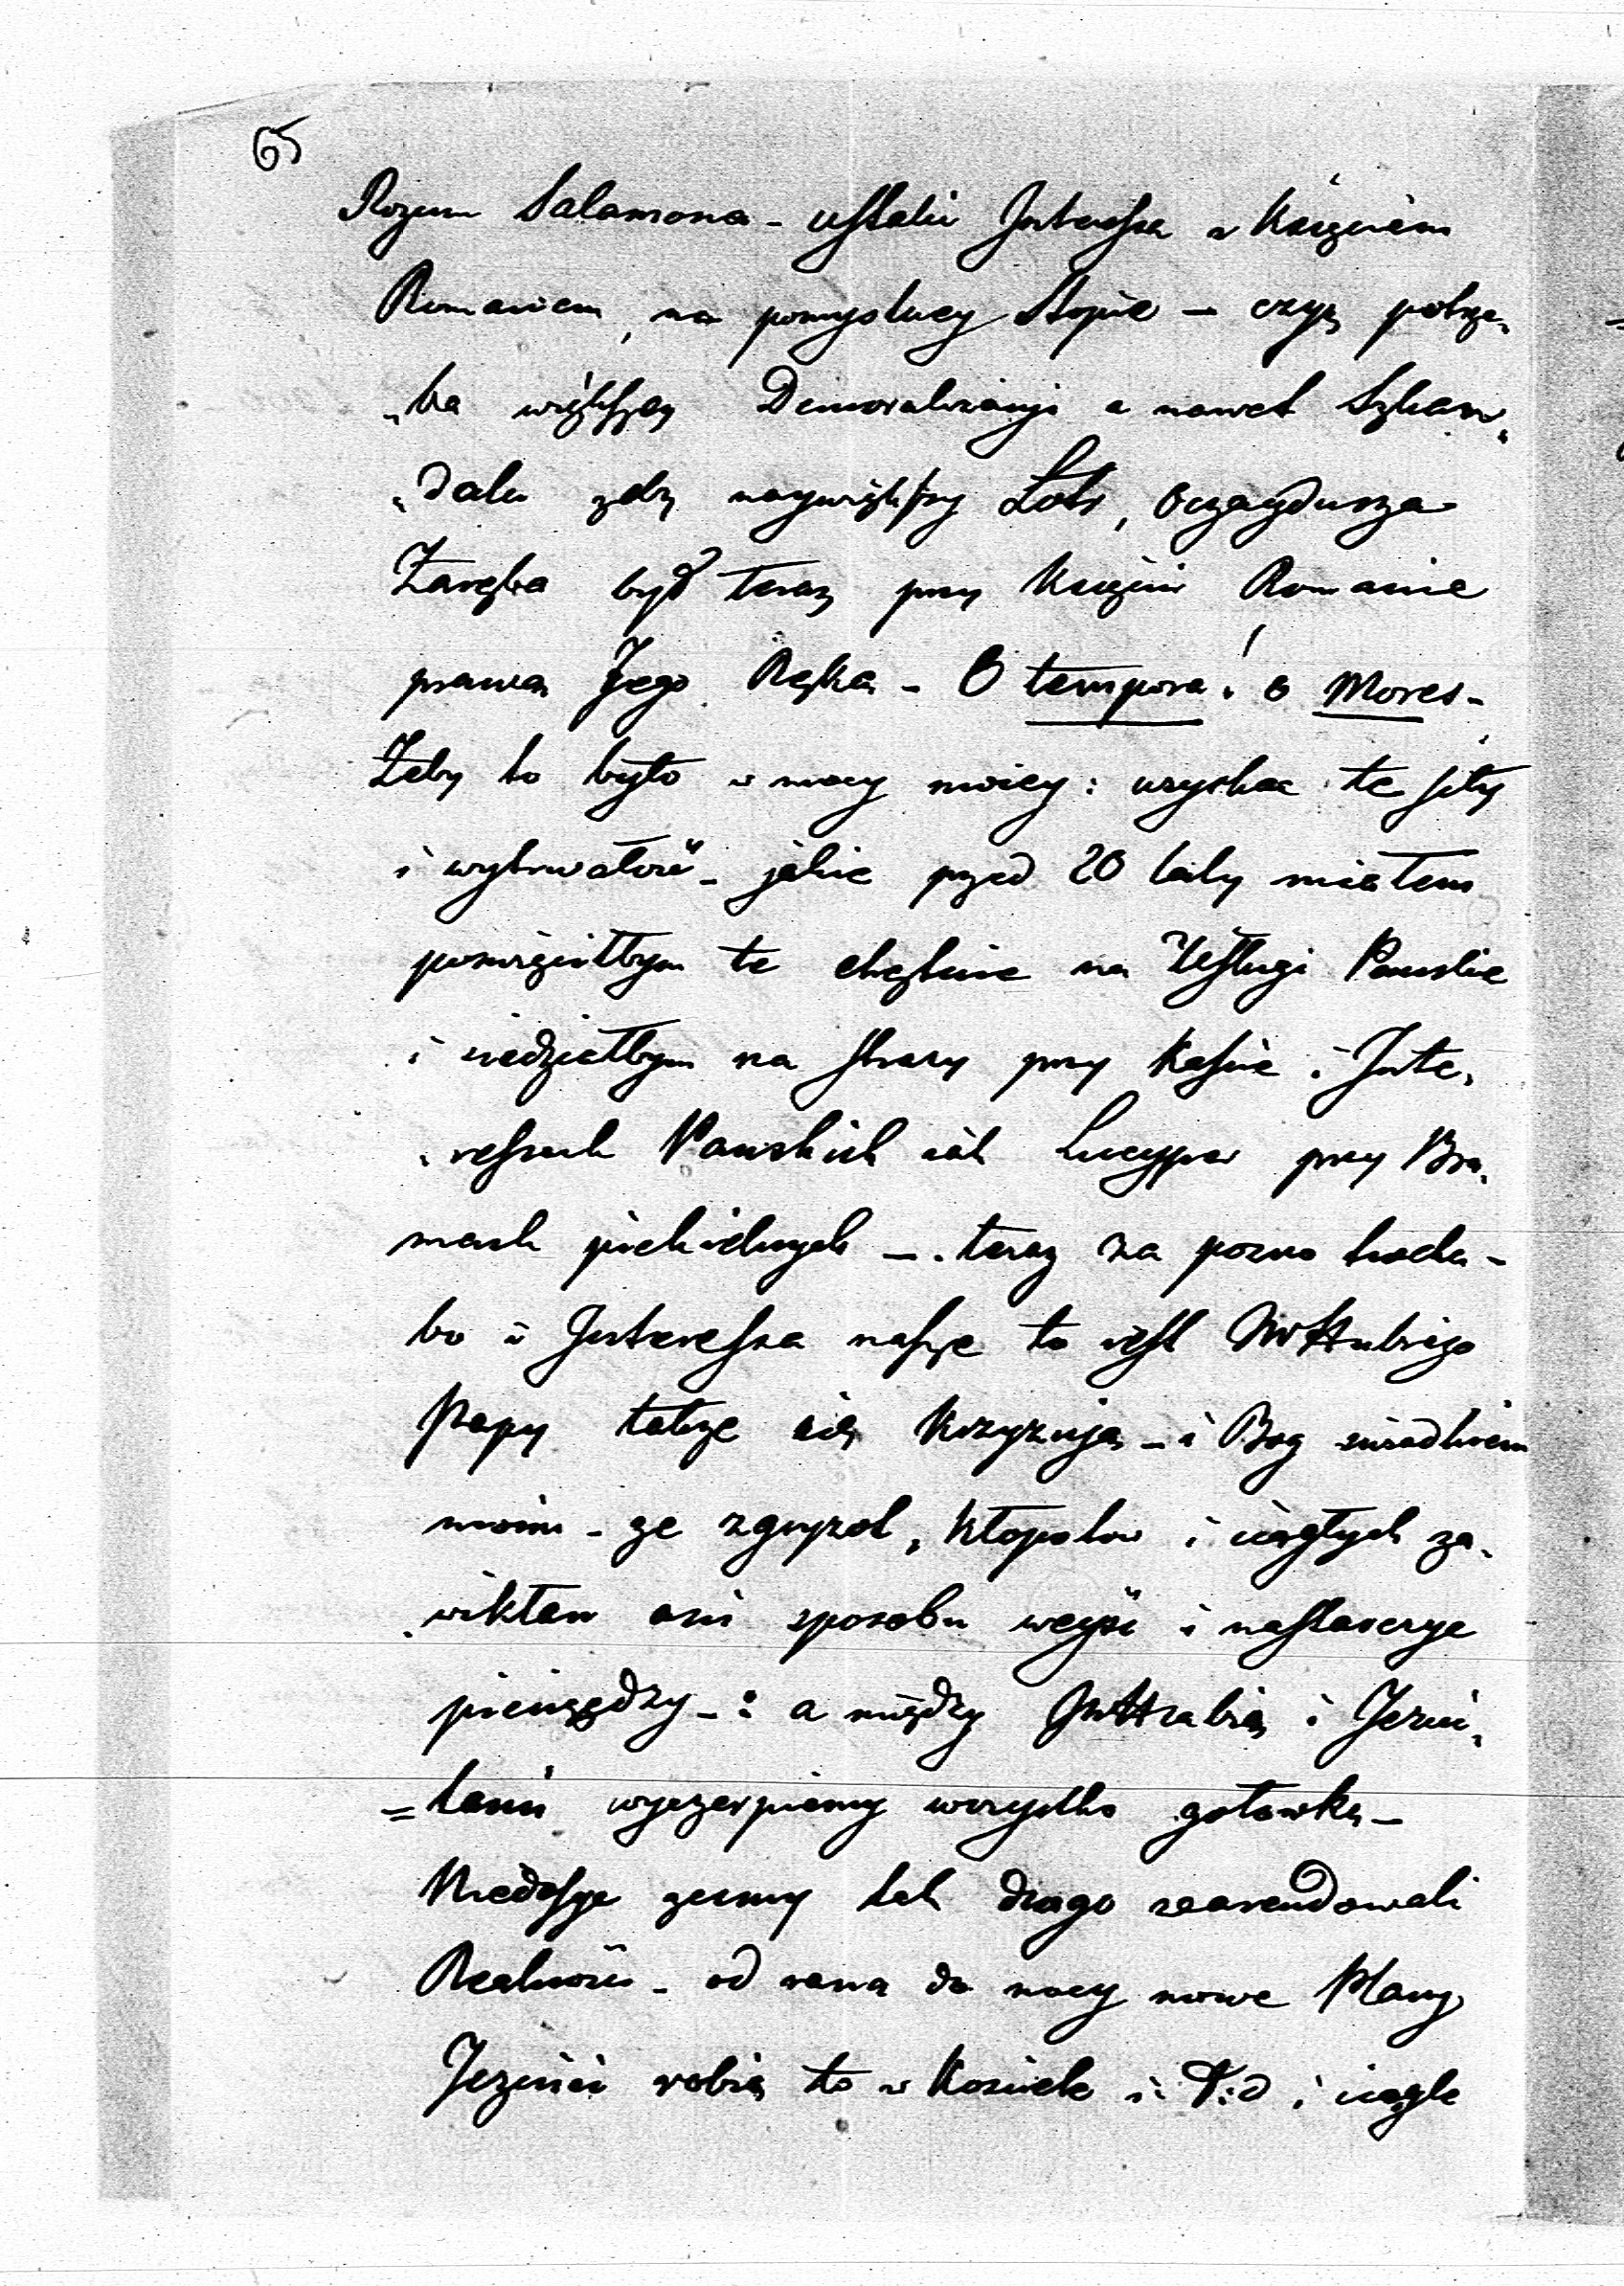 65
Rozum Salamona - ustalić Interessa z Księciem
Romanem, na pomyslney Stopie - czyż potrze„
„ba większey Demoralizacyi a nawet Szkan„
„dalu gdy naywiększy Łotr, Oczayduszа
Zaręba był teraz przy Księciu Romanie
prawą Jego Ręką - O tempora! o Mores -
Żeby to było w mocy moiey: uzyskac te siły
i wytrwałość - jakie przed 20 laty miałem
poswięciłbym te chętnie na Usługi Panskie
i siedziałbym na straży przy Kassie i Inte„
„ressach Panskich iak Lucyper przy Bra„
mach piekielnych - teraz za pozno trocha -
bo i Interessa nasze to iest JWHrabiego
Papy także się Krzyzuią - i Bog swiadkiem
moim - ze zgryzot, Kłopotow i ciągłych za„
„wikłan ani sposobu weyść i nastarczyc
pieniędzy - : a między JWHrabią i Jezui„
=tami wyczerpiemy wszystko gotowkę -
Nieдosyc zesmy tak drogo zaarendowali
Realnosci - od rana do nocy nowe Plany
Jezuici robią to w Kosciele i t:d i ciągle